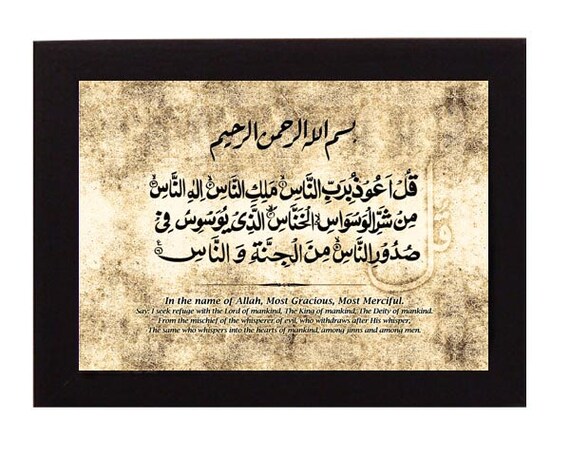 بسم الله الرحمن الرحيم
قُلْ اَعُوْذُ بِرَبِّ النَّاسِ ۙ مَلِكِ النَّاسِ ۙ اِلٰهِ النَّاسِ ۙ
مِنْ شَرِّ الْوَسْوَاسِ ۙ الْخَنَّاسِ ۙ الَّذِىْ يُوَسْوِسُ فِىْ
صُدُوْرِ النَّاسِ ۙ مِنَ الْجِنَّةِ وَ النَّاسِ
In the name of Allah, Most Gracious, Most Merciful.
Say: I seek refuge with the Lord of mankind, The King of mankind, The Deity of mankind.
From the mischief of the whisperer of evil, who withdraws after His whisper,
The same who whispers into the hearts of mankind, among jinns and among men.